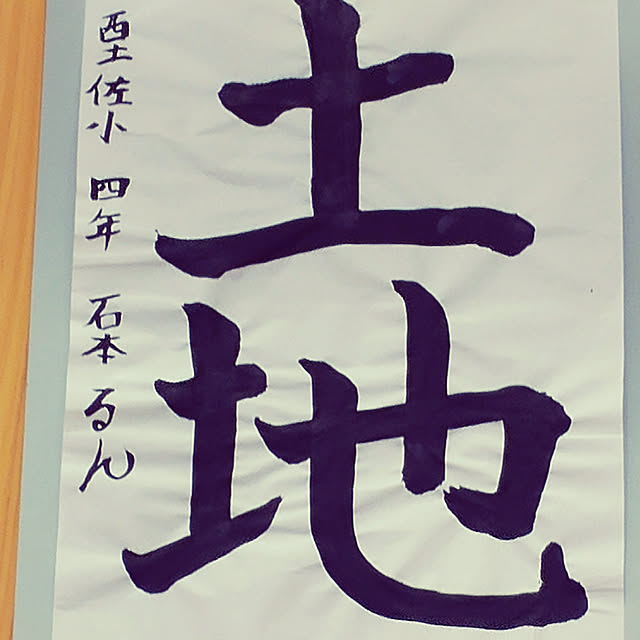 土地
西土佐小 四年 石本 るん